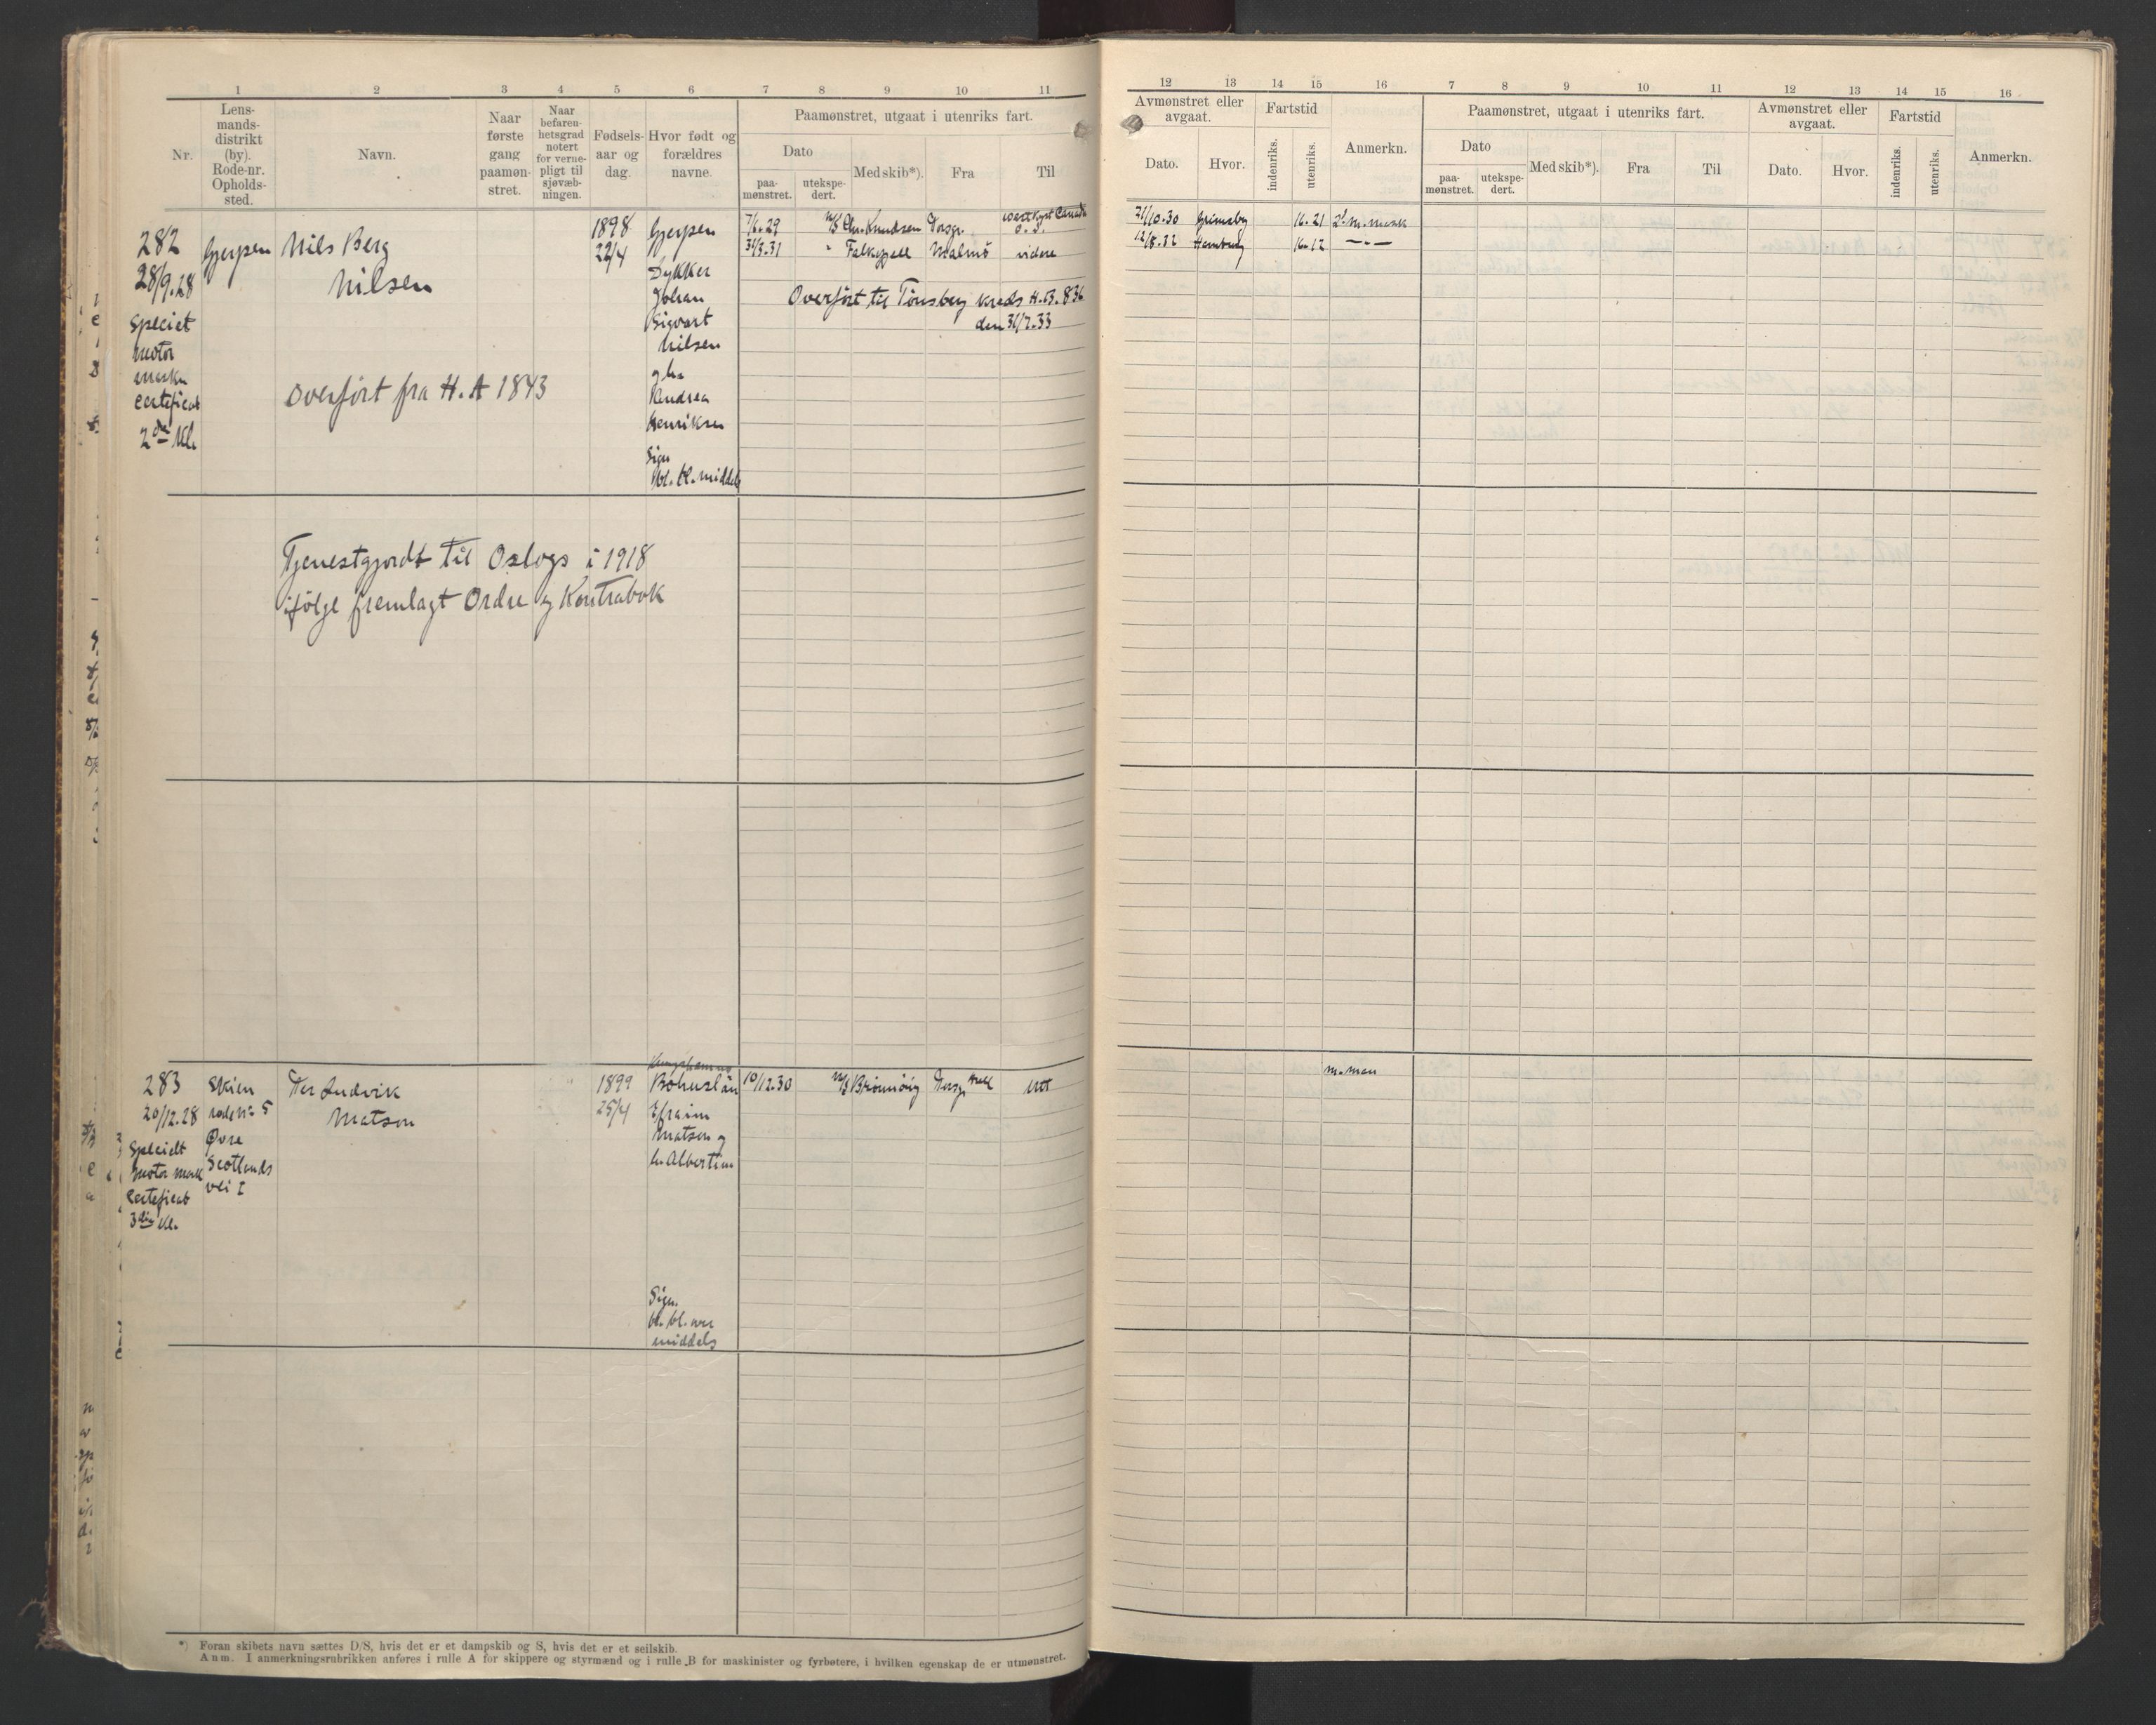 1 2 3 4 5 6 7 8 9 10 11
Nr.
Lens-
mands-
distrikt
(by).
Rode-nr.
Opholds-
sted.
Navn.
Naar
første
gang
paamøn-
stret.
Naar
befaren-
hetsgrad
notert
for verne-
pligt til
sjøvæb-
ningen.
Fødsels-
aar og
dag.
Hvor født og
forældres
navne.
Paamønstret, utgaat i utenriks fart.
Dato
paa-
mønstret.
utekspe-
dert.
Med skib*).
Fra
Til
282
28/9.28
Speciet
motor
mask
Certificat
2den Kl.
Gjerpen
Nils Berg
Nilsen
Overført fra H. A 1843
1898
22/4
Gjerpen
Dykker
Johan
Sigvart
Nilsen
Andrea
Henriksen
Sign
bl. bl. middels
7/6.29 M/S Chr. Knudsen Porsgr. Canada
31/3.31 " Falkefjell Malmö videre
Overført til Tönsberg kreds H.B. 836
den 31/7.33
Tjenestgjordt til Oslogs i 1918
ifölge fremlagt Ordre og Kontrabok
283
20/12.28
Specielt
motor mask
Certeficat
3die Kl.
Skien
rode No 5
Øvre
Scotlands
vei I
Per Ludvik
Matson
1899
25/4
Bohuslän
Efraim
Matson og
h. Albertine
Sign.
bl. bl. over
middels
10/12.30 M/S Porsgr.
*) Foran skibets navn sættes D/S, hvis det er et dampskib og S, hvis det er et seilskib.
Anm. I anmerkningsrubrikken anføres i rulle A for skippere og styrmænd og i rulle B for maskinister og fyrbøtere, i hvilken egenskap de er utmønstret.
12 13 14 15 16 7 8 9 10 11 12 13 14 15 16
Avmønstret eller
avgaat.
Dato.
Hvor.
Fartstid
indenriks.
utenriks.
Anmerkn.
Paamønstret, utgaat i utenriks fart.
Dato
paa-
mønstret.
utekspe-
dert.
Med skib*).
Fra
Til
Avmønstret eller
avgaat.
Dato.
Hvor.
Fartstid
indenriks.
utenriks.
Anmerkn.
21/10.30 Grimsby 16.21 2d m. mask
12/8.32 Hamburg 16.12 — " —
m. man